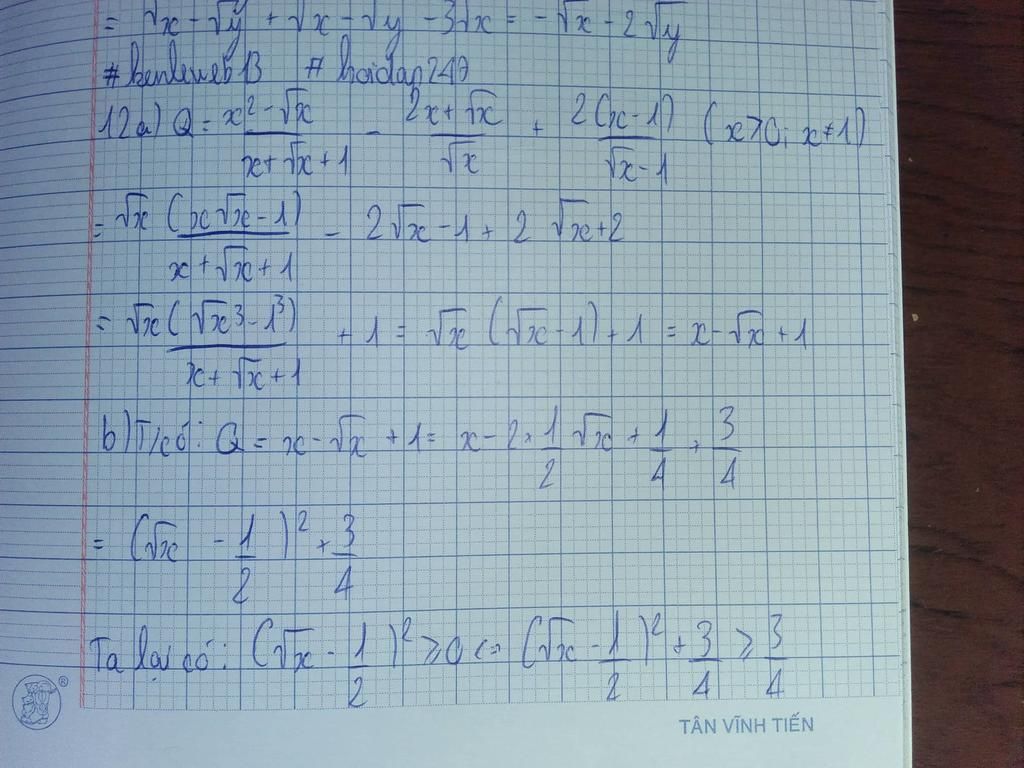 = √x - √y + √x - √y - 3√x = -√x - 2√y
#kenleweb13 #hoidap247
12a) Q = (x² - √x)/(x + √x + 1) - (2x + √x)/√x + (2(x - 1))/(√x - 1) (x > 0; x ≠ 1)
= (√x (x√x - 1))/(x + √x + 1) - 2√x - 1 + 2√x + 2
= (√x (√x³ - 1³))/(x + √x + 1) + 1 = √x (√x - 1) + 1 = x - √x + 1
b) Q = x - √x + 1 = x - 2 × 1/2 √x + 1/4 + 3/4
= (√x - 1/2)² + 3/4
Ta lại có: (√x - 1/2)² ≥ 0 <=> (√x - 1/2)² + 3/4 ≥ 3/4
®
TÂN VĨNH TIẾN